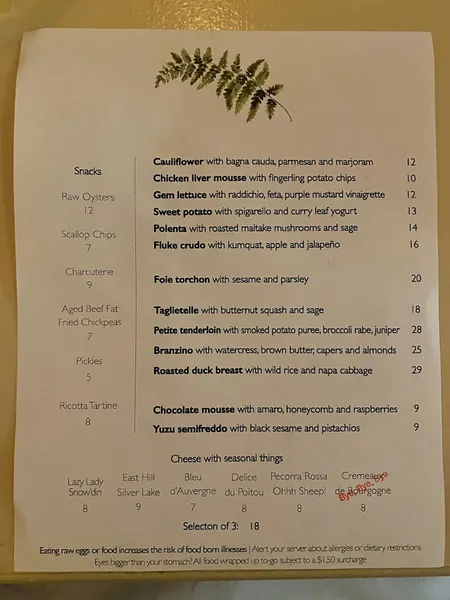 Snacks
Raw Oysters
12
Scallop Chips
7
Charcuterie
9
Aged Beef Fat
Fried Chickpeas
7
Pickies
5
Ricotta Tartine
8
Cauliflower with bagna cauda, parmesan and marjoram 12
Chicken liver mousse with fingerling potato chips 10
Gem lettuce with raddichio, feta, purple mustard vinaigrette 12
Sweet potato with spigarello and curry leaf yogurt 13
Polenta with roasted maitake mushrooms and sage 14
Fluke crudo with kumquat, apple and jalapeño 16
Foie torchon with sesame and parsley 20
Taglietelle with butternut squash and sage 18
Petite tenderloin with smoked potato puree, broccoli rabe, juniper 28
Branzino with watercress, brown butter, capers and almonds 25
Roasted duck breast with wild rice and napa cabbage 29
Chocolate mousse with amaro, honeycomb and raspberries 9
Yuzu semifreddo with black sesame and pistachios 9
Cheese with seasonal things
Lazy Lady
Snow'din
8
East Hill
Silver Lake
9
Bleu
d'Auvergne
7
Delice
du Poitou
8
Pecorra Rossa
Ohhh Sheep!
8
Cremeaux
de Bourgogne
8
Bye, Bye, Bye
Selecton of 3: 18
Eating raw eggs or food increases the risk of food born illnesses | Alert your server about allergies or dietary restrictions
Eyes bigger than your stomach? All food wrapped up to-go subject to a $1.50 surcharge